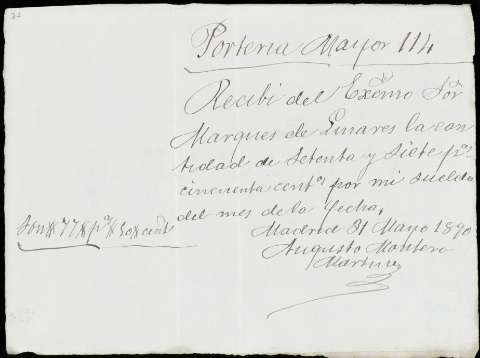 Porteria Mayor 114
Recibi del Excmo Sor
Marques de Linares la can
tidad de Setenta y Siete ps
cincuenta cents por mi sueldo
del mes de la fecha.
Madrid 31 Mayo 1890
Augusto Montero
Martinez
Son 77 ps 50 cents